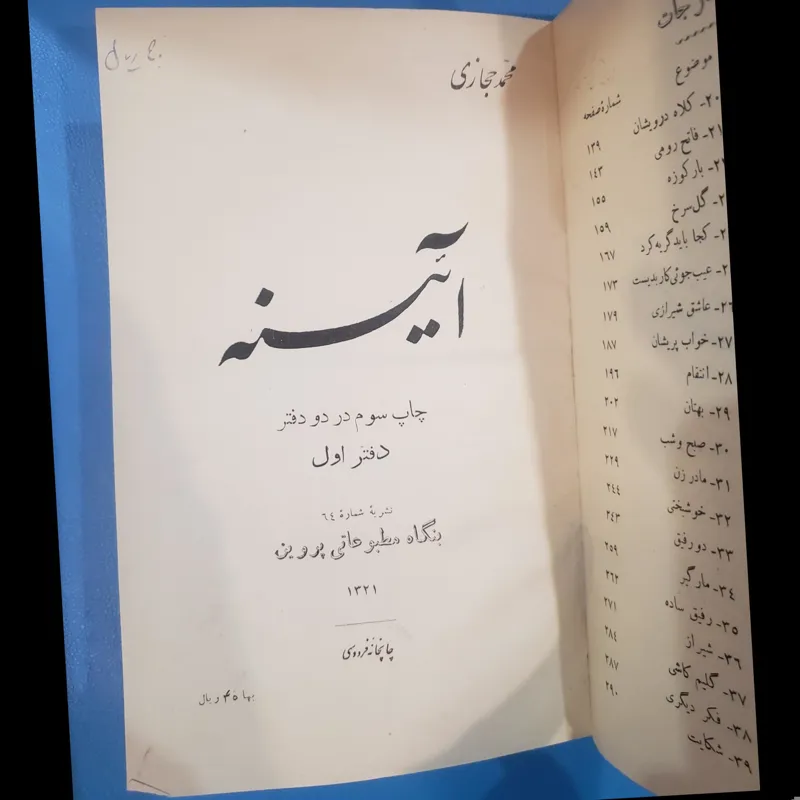 محمد حجازی
آئینه
چاپ سوم در دو دفتر
دفتر اول
نشریهٔ شمارهٔ ٦٤
بنگاه مطبوعاتی پروین
۱۳۲۱
چاپخانه فردوسی
بها ۴۵ ریال
موضوع شمارهٔ صفحه
۲۰- کلاه درویشان ۱۳۹
۲۱- فاتح رومی ۱۴۳
بار کوزه ۱۵۵
گل سرخ ۱۵۹
کجا باید گریه کرد ۱۶۷
عیب‌جوئی کار بدیست ۱۷۳
۲۶- عاشق شیرازی ۱۷۹
۲۷- خواب پریشان ۱۸۷
۲۸- انتقام ۱۹۶
۲۹- بهتان ۲۰۲
۳۰- صبح و شب ۲۱۷
۳۱- مادر زن ۲۲۹
۳۲- خوشبختی ۲۴۴
۳۳- دو رفیق ۲۴۳
۳۴- مارگیر ۲۵۹
۳۵- رفیق ساده ۲۶۲
۳۶- شیراز ۲۷۱
۳۷- کلیم کاشی ۲۸۴
۳۸- فکر دیگری ۲۸۷
۳۹- شکایت ۲۹۰